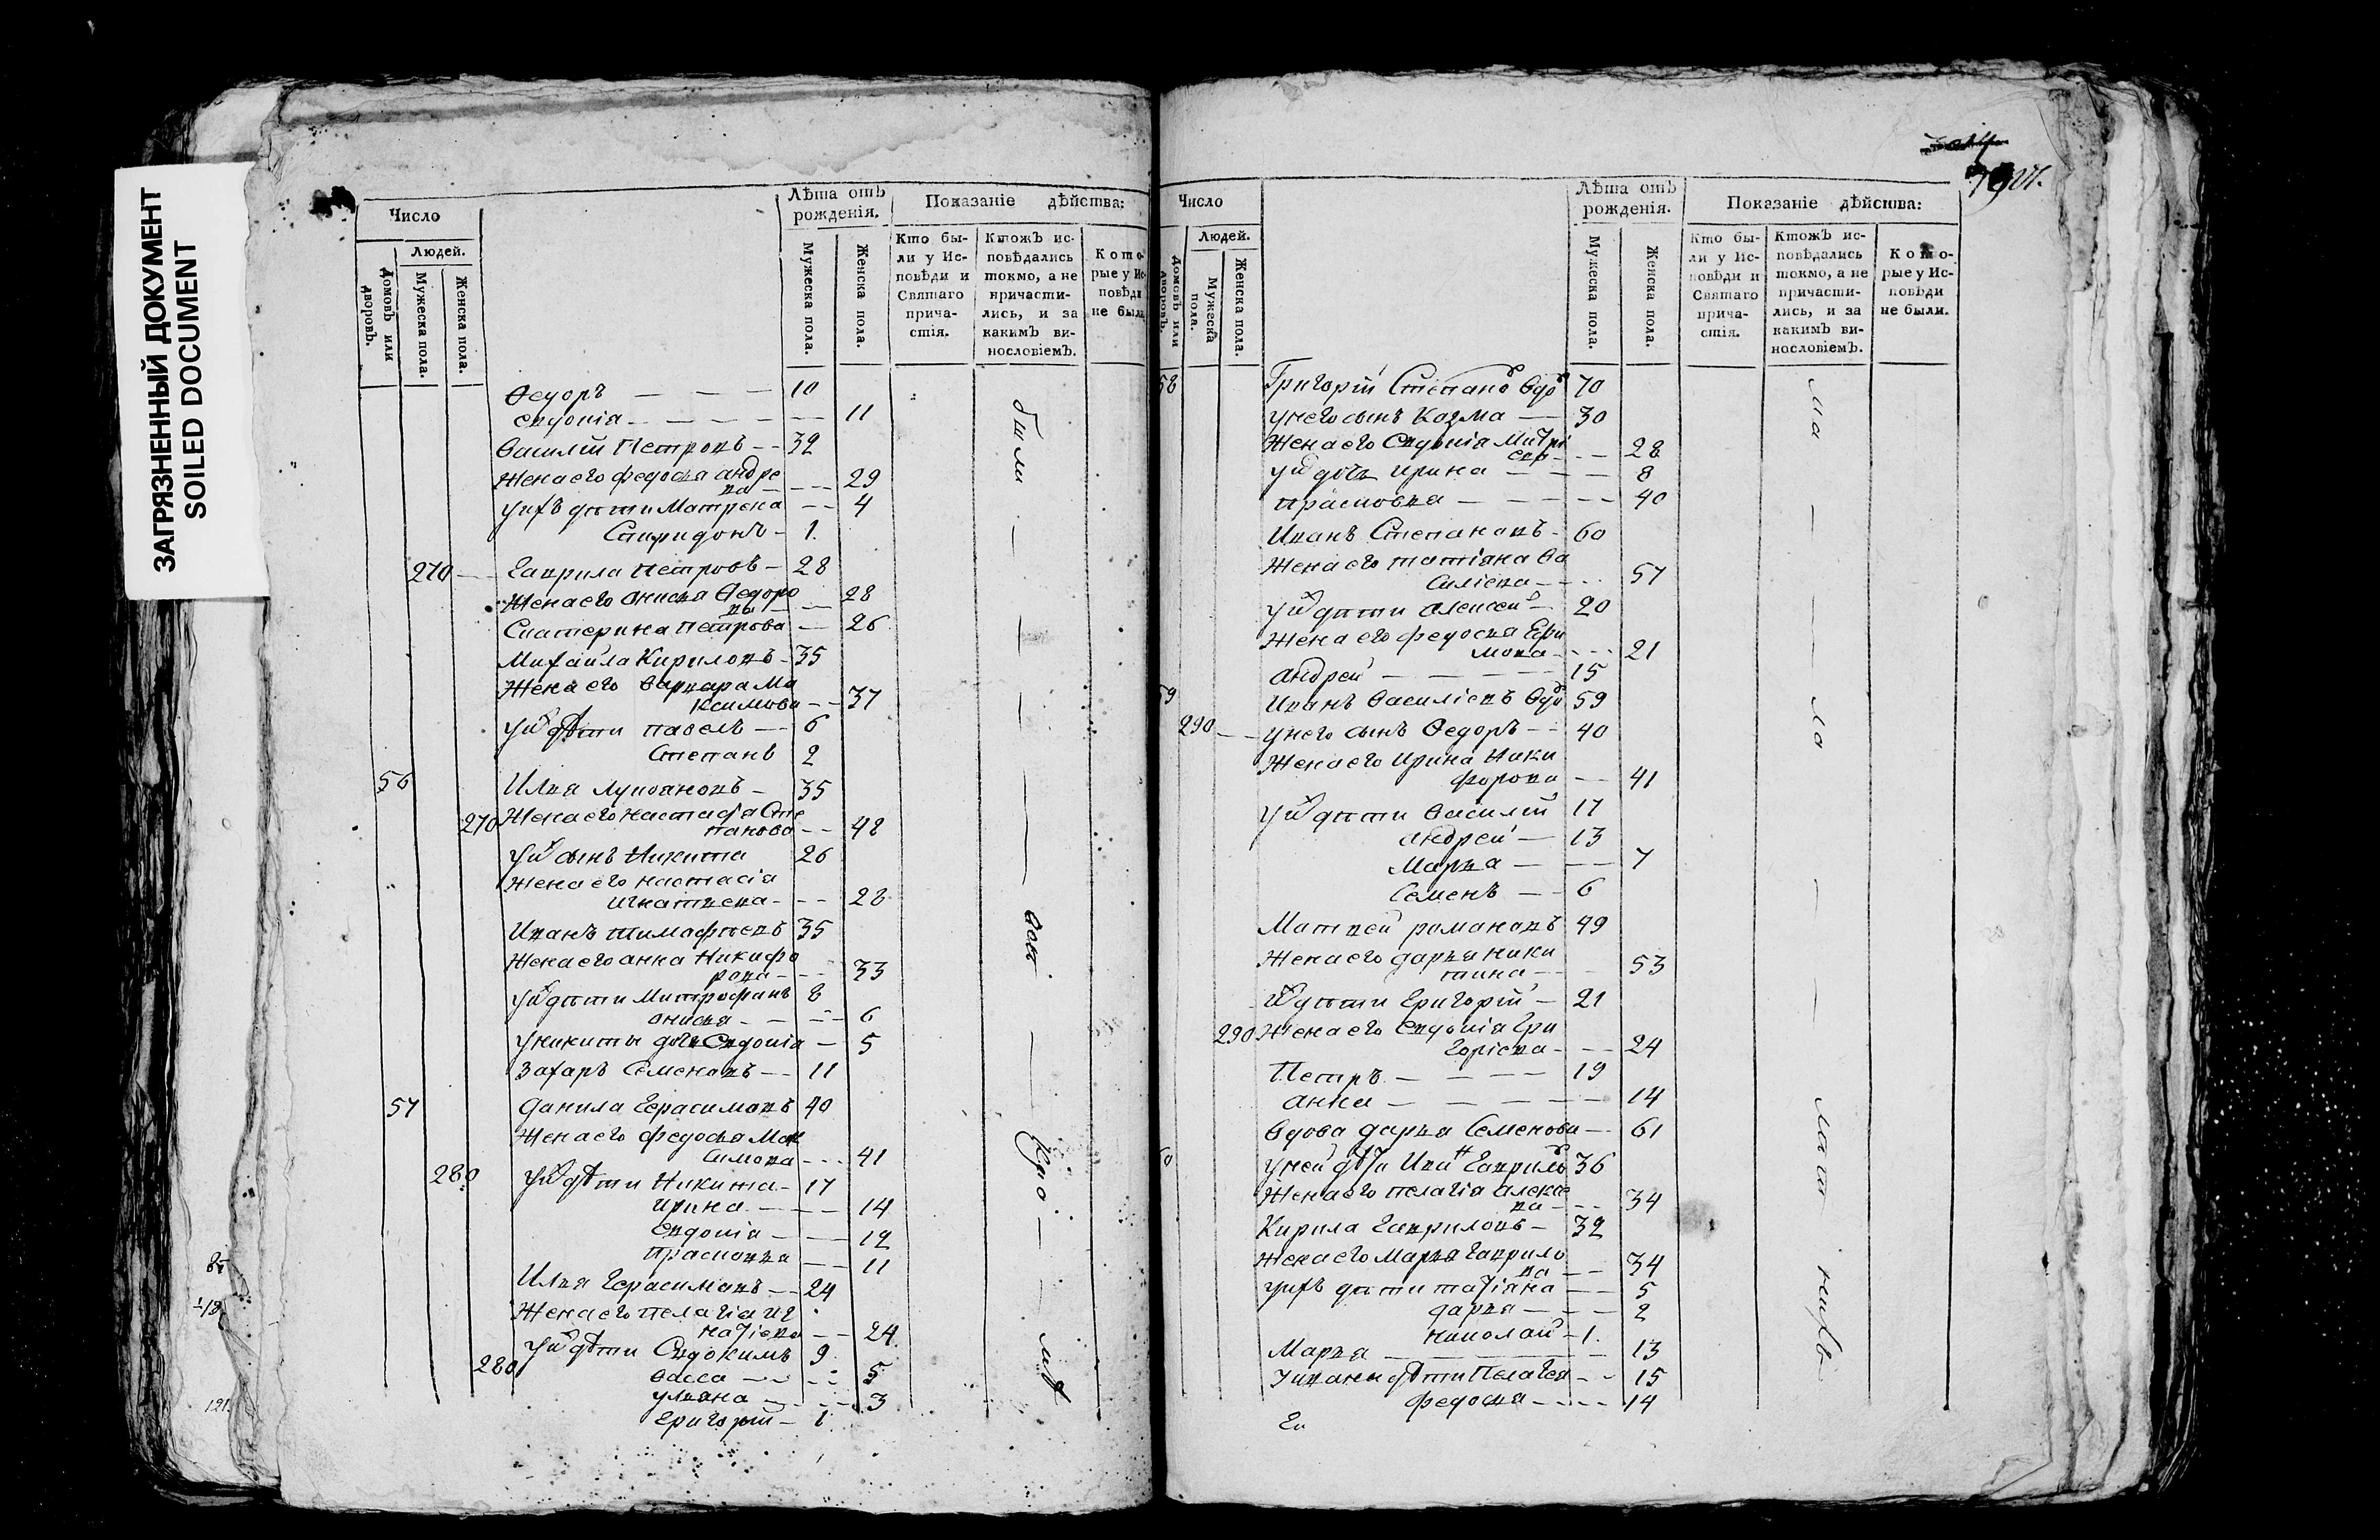 ЗАГРЯЗНЕННЫЙ ДОКУМЕНТ
SOILED DOCUMENT
Число
Людей.
Домовъ или дворовъ.
Мужеска пола.
Женска пола.
Лѣта отъ рожденія.
Мужеска пола.
Женска пола.
Показаніе дѣйства:
Кто бы-
ли у Ис-
повѣди и
Святаго
прича-
стія.
Ктожъ ис-
повѣдались
токмо, а не
причасти-
лись, и за
какимъ ви-
нословіемъ.
Кото-
рые у Ис-
повѣди
не были
Ѳедоръ — — — 10
Евдокіа — — — 11
Василій Петровъ — 32
Жена его Федосья Андре
ва — — 29
У нихъ дѣти Матрена — 4
Спиридонъ — 1.
270 — Гаврила Петровъ — 28
Жена его Анисья Ѳедоро
ва — 28
Екатерина Петрова — 26
Михайла Кириловъ — 35
Жена его Варвара Ма
ксимова — 37
У ни дѣти Павелъ — 6
Степанъ 2
56 Илья Лукьяновъ — 35
270 Жена его Настасья Сте
панова — 48
У ни сынъ Никита 26
Жена его Настасіа
Игнатьева — 28
Иванъ Тимофѣевъ 35
Жена его Анна Никифо
рова — 33
У ни дѣти Митрофанъ 8
Анисья — — 6
У Никиты дочь Евдокіа — 5
Захаръ Семеновъ — 11
57 Данила Герасимовъ 40
Жена его Федосья Мак
симова — 41
280 У ни дѣти Никита — 17
Ирина — — 14
Евдокіа — — 12
Прасковья — 11
Илья Герасимовъ — 24
Жена его Пелагіа Иг
натіева — 24
У ни дѣти Евдокимъ 9
280 Васса — — 5
Ульяна — — 3
Григорій — 1
были
Число
Людей.
Домовъ или дворовъ.
Мужеска пола.
Женска пола.
Лѣта отъ рожденія.
Мужеска пола.
Женска пола.
Показаніе дѣйства:
Кто бы-
ли у Ис-
повѣди и
Святаго
прича-
стія.
Ктожъ ис-
повѣдались
токмо, а не
причасти-
лись, и за
какимъ ви-
нословіемъ.
Кото-
рые у Ис-
повѣди
не были.
58 Григорій Степано Вдо 70
У него сынъ Козма — 30
Жена его Евдокіа Митрі
ева — 28
У ни дочь Ирина — — 8
Прасковья — — 40
Иванъ Степановъ — 60
Жена его Татіана Ва
силіева — 57
У ни дѣти Алексей — 20
Жена его Федосья Ефи
мова — 21
Андрей — — 15
59 Иванъ Василіевъ Вдо 59
290 — У него сынъ Ѳедоръ — 40
Жена его Ирина Ники
форова — 41
У ни дѣти Василій 17
Андрей — 13
Марья — — 7
Семенъ — 6
Матвей Романовъ 49
Жена его Дарья Ники
тина — 53
У ни дѣти Григорій — 21
290 Жена его Евдокіа Гри
горіева — 24
Петръ — — 19
Анна — — — 14
Вдова Дарья Семенова — 61
У ней дѣти Ива Гаврило 36
Жена его Пелагіа Алексе
ва — 34
Кирила Гавриловъ — 32
Жена его Марья Гаврило
ва — 34
У нихъ дѣти Татіана — 5
Дарья — — 2
Николай — 1.
Марья — — 13
У Ивана дѣти Пелагея — 15
Федосья — — 14